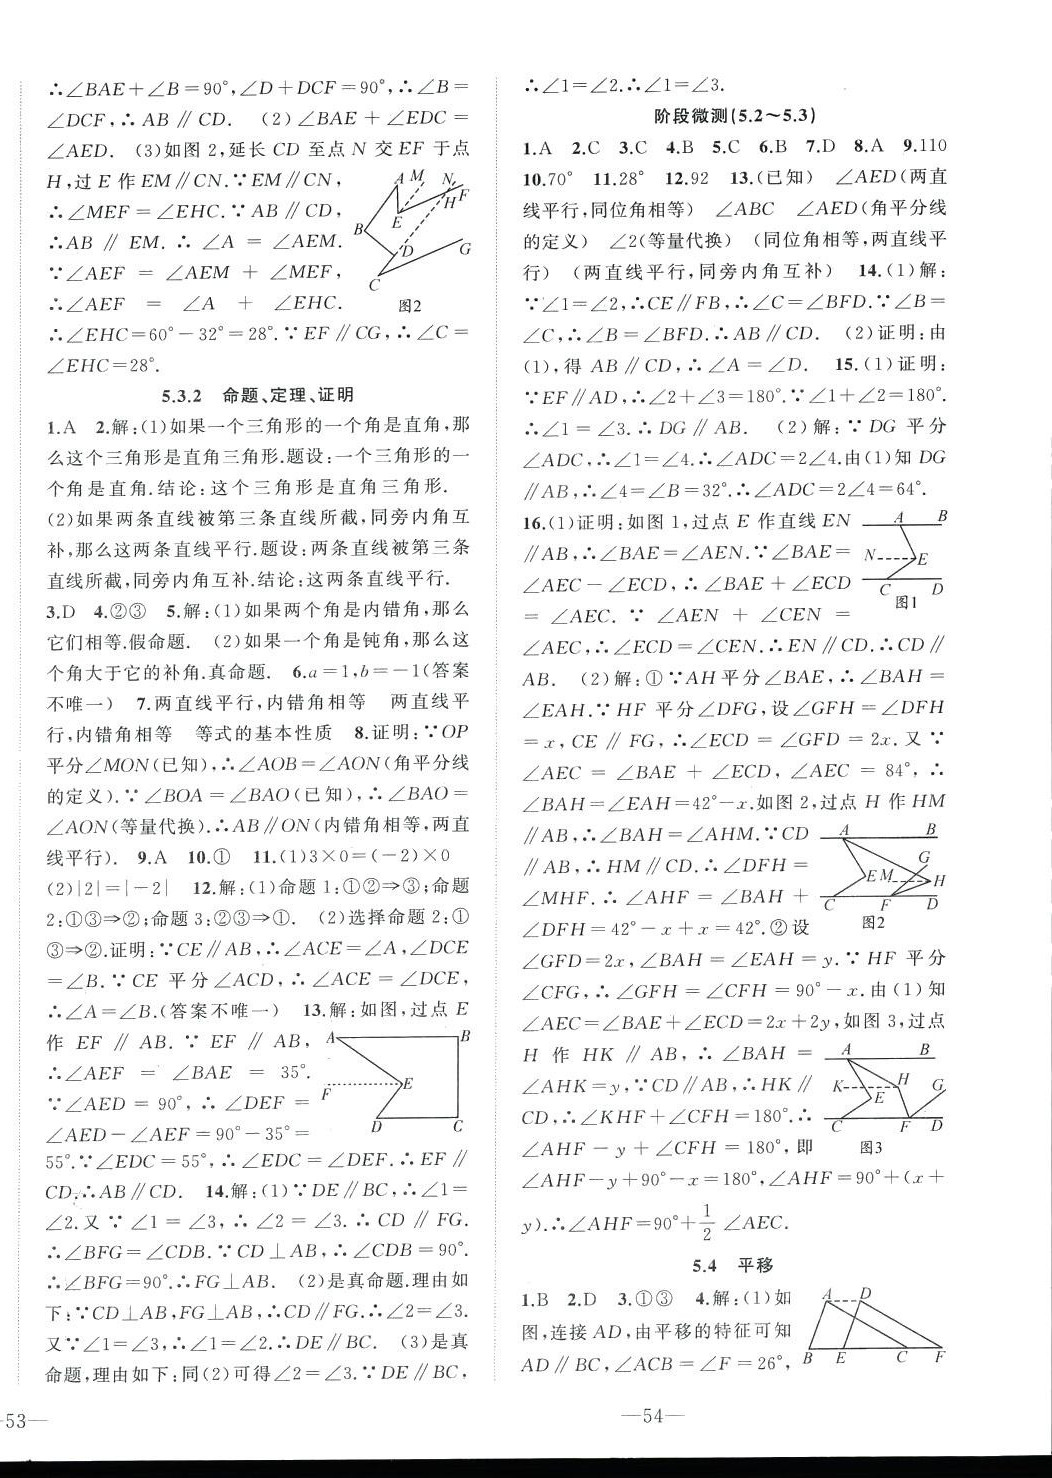 ∴∠BAE+∠B=90°,∠D+DCF=90°,∴∠B=
∠DCF,∴AB∥CD. (2)∠BAE+∠EDC=
∠AED. (3)如图2,延长CD至点N交EF于点
H,过E作EM∥CN.∵EM∥CN,
∴∠MEF=∠EHC.∵AB∥CD,
∴AB∥EM.∴∠A=∠AEM.
∵∠AEF=∠AEM+∠MEF,
∴∠AEF=∠A+∠EHC.
∴∠EHC=60°-32°=28°.∵EF∥CG,∴∠C=
∠EHC=28°.
A M N F H E B D G C
图2
5.3.2 命题、定理、证明
1.A 2.解:(1)如果一个三角形的一个角是直角,那
么这个三角形是直角三角形.题设:一个三角形的一
个角是直角.结论:这个三角形是直角三角形.
(2)如果两条直线被第三条直线所截,同旁内角互
补,那么这两条直线平行.题设:两条直线被第三条
直线所截,同旁内角互补.结论:这两条直线平行.
3.D 4.②③ 5.解:(1)如果两个角是内错角,那么
它们相等.假命题. (2)如果一个角是钝角,那么这
个角大于它的补角.真命题. 6.a=1,b=-1(答案
不唯一) 7.两直线平行,内错角相等 两直线平
行,内错角相等 等式的基本性质 8.证明:∵OP
平分∠MON(已知),∴∠AOB=∠AON(角平分线
的定义).∵∠BOA=∠BAO(已知),∴∠BAO=
∠AON(等量代换).∴AB∥ON(内错角相等,两直
线平行). 9.A 10.① 11.(1)3×0=(-2)×0
(2)|2|=|-2| 12.解:(1)命题1:①②⇒③;命题
2:①③⇒②;命题3:②③⇒①. (2)选择命题2:①
③⇒②.证明:∵CE∥AB,∴∠ACE=∠A,∠DCE
=∠B.∵CE平分∠ACD,∴∠ACE=∠DCE,
∴∠A=∠B.(答案不唯一) 13.解:如图,过点E
作EF∥AB.∵EF∥AB,
∴∠AEF=∠BAE=35°.
∵∠AED=90°,∴∠DEF=
∠AED-∠AEF=90°-35°=
A B F E D C
55°.∵∠EDC=55°,∴∠EDC=∠DEF.∴EF∥
CD.∴AB∥CD. 14.解:(1)∵DE∥BC,∴∠1=
∠2.又∵∠1=∠3,∴∠2=∠3.∴CD∥FG.
∴∠BFG=∠CDB.∵CD⊥AB,∴∠CDB=90°.
∴∠BFG=90°.∴FG⊥AB. (2)是真命题.理由如
下:∵CD⊥AB,FG⊥AB,∴CD∥FG.∴∠2=∠3.
又∵∠1=∠3,∴∠1=∠2.∴DE∥BC. (3)是真
命题,理由如下:同(2)可得∠2=∠3.∵DE∥BC,
53—
∴∠1=∠2.∴∠1=∠3.
阶段微测(5.2～5.3)
1.A 2.C 3.C 4.B 5.C 6.B 7.D 8.A 9.110
10.70° 11.28° 12.92 13.(已知) ∠AED(两直
线平行,同位角相等) ∠ABC ∠AED(角平分线
的定义) ∠2(等量代换) (同位角相等,两直线平
行) (两直线平行,同旁内角互补) 14.(1)解:
∵∠1=∠2,∴CE∥FB,∴∠C=∠BFD.∵∠B=
∠C,∴∠B=∠BFD.∴AB∥CD. (2)证明:由
(1),得AB∥CD,∴∠A=∠D. 15.(1)证明:
∵EF∥AD,∴∠2+∠3=180°.∵∠1+∠2=180°.
∴∠1=∠3.∴DG∥AB. (2)解:∵DG平分
∠ADC,∴∠1=∠4.∴∠ADC=2∠4.由(1)知DG
∥AB,∴∠4=∠B=32°.∴∠ADC=2∠4=64°.
16.(1)证明:如图1,过点E作直线EN
∥AB,∴∠BAE=∠AEN.∵∠BAE=
∠AEC-∠ECD,∴∠BAE+∠ECD
=∠AEC.∵∠AEN+∠CEN=
A B N E C D
图1
∠AEC,∴∠ECD=∠CEN.∴EN∥CD.∴CD∥
AB. (2)解:①∵AH平分∠BAE,∴∠BAH=
∠EAH.∵HF平分∠DFG,设∠GFH=∠DFH
=x,CE∥FG,∴∠ECD=∠GFD=2x.又∵
∠AEC=∠BAE+∠ECD,∠AEC=84°,∴
∠BAH=∠EAH=42°-x.如图2,过点H作HM
∥AB,∴∠BAH=∠AHM.∵CD
∥AB,∴HM∥CD.∴∠DFH=
∠MHF.∴∠AHF=∠BAH+
∠DFH=42°-x+x=42°.②设
A B G E M H C F D
图2
∠GFD=2x,∠BAH=∠EAH=y.∵HF平分
∠CFG,∴∠GFH=∠CFH=90°-x.由(1)知
∠AEC=∠BAE+∠ECD=2x+2y,如图3,过点
H作HK∥AB,∴∠BAH=
∠AHK=y,∵CD∥AB,∴HK∥
CD,∴∠KHF+∠CFH=180°.∴
∠AHF-y+∠CFH=180°,即
A B K H G E C F D
图3
∠AHF-y+90°-x=180°,∠AHF=90°+(x+
y).∴∠AHF=90°+1/2∠AEC.
5.4 平移
1.B 2.D 3.①③ 4.解:(1)如
图,连接AD,由平移的特征可知
AD∥BC,∠ACB=∠F=26°,
A D B E C F
—54—